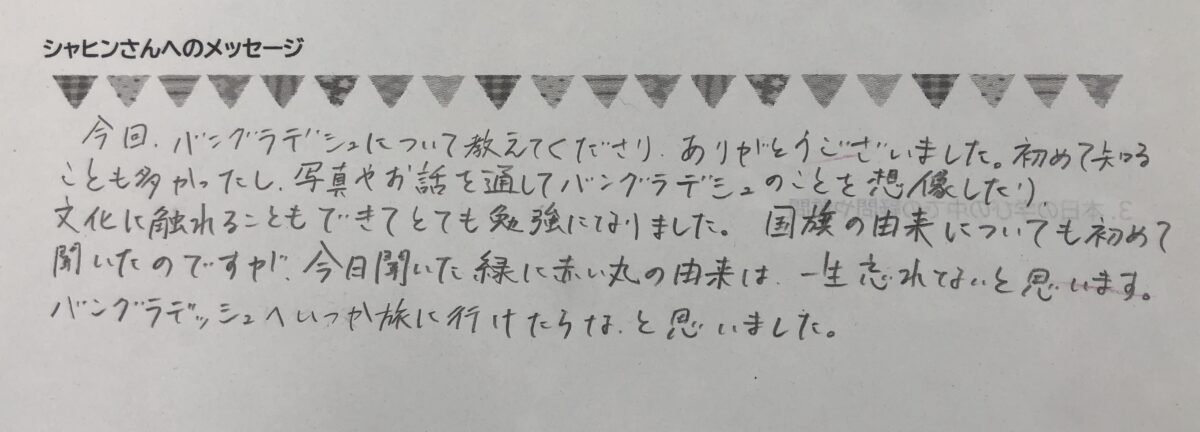 シャヒンさんへのメッセージ
今回、バングラデシュについて教えてくださり、ありがとうございました。初めて知る
ことも多かったし、写真やお話を通してバングラデシュのことを想像したり、
文化に触れることもできてとても勉強になりました。国旗の由来についても初めて
聞いたのですが、今日聞いた緑に赤い丸の由来は、一生忘れてないと思います。
バングラデッシュへいつか旅に行けたらな、と思いました。